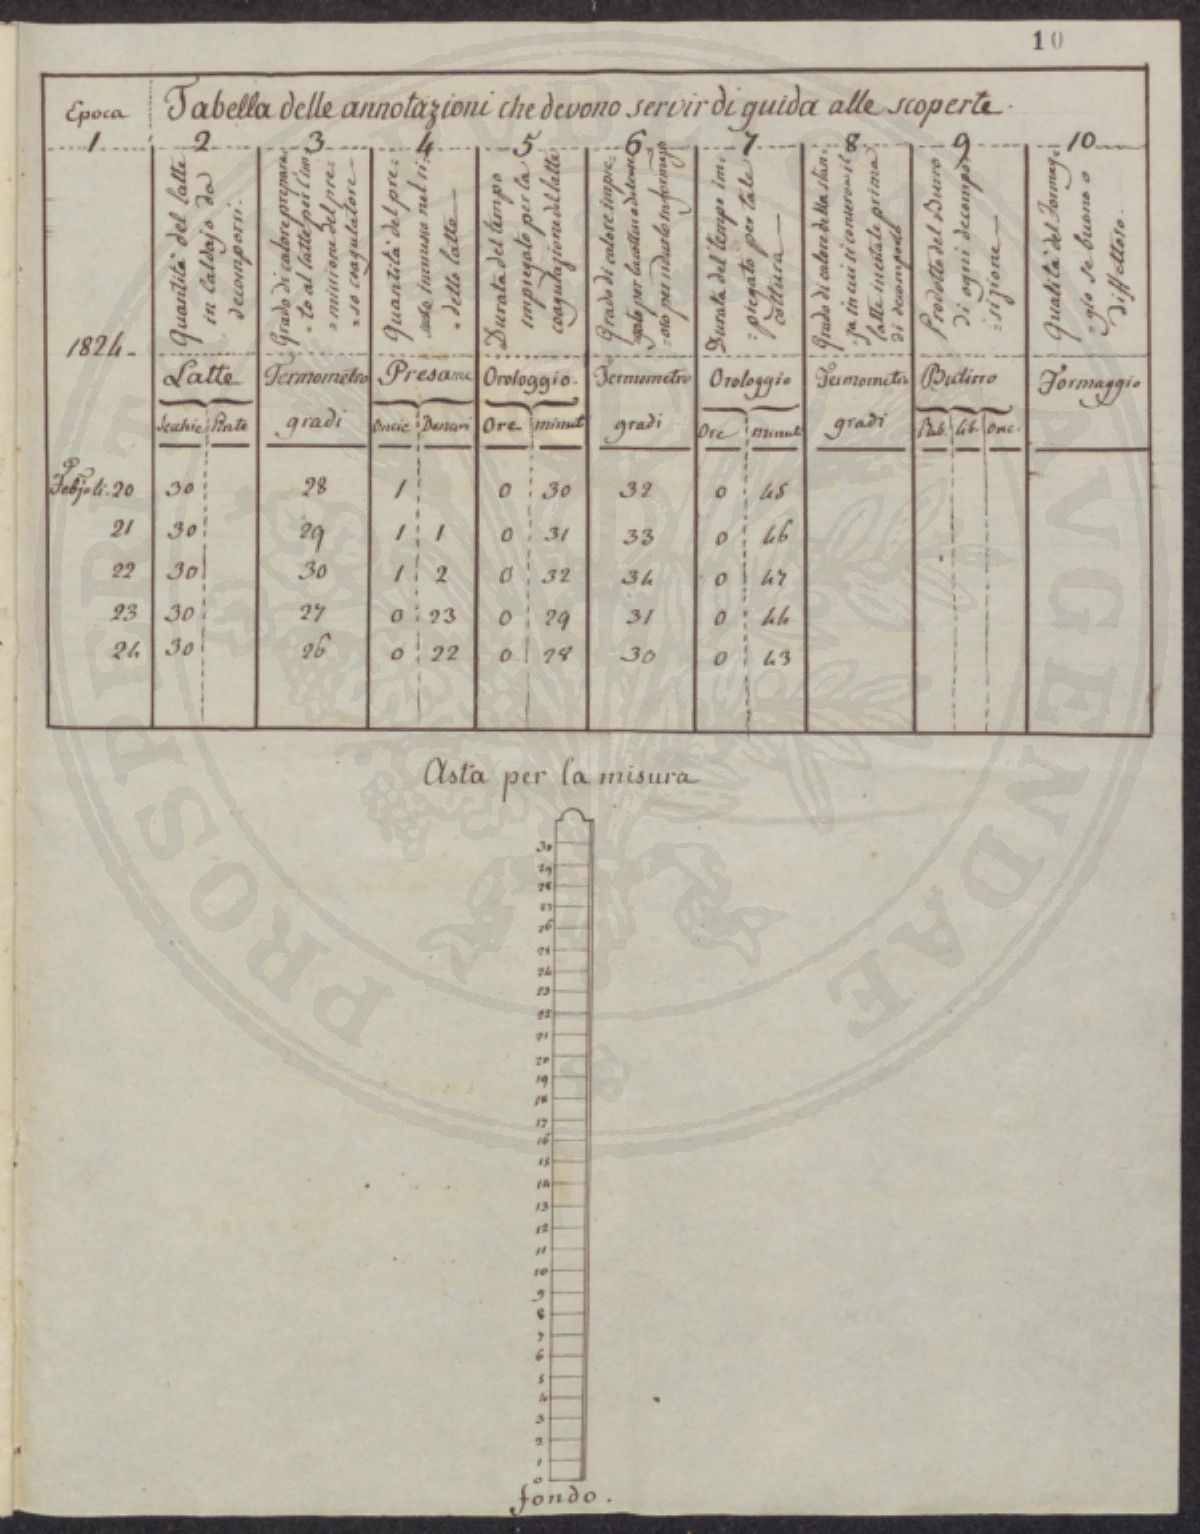 10
Epoca
Tabella delle annotazioni che devono servir di guida alle scoperte.
1 2 3 4 5 6 7 8 9 10
1824
Quantità del latte
in caldajo da
decomporsi.
Grado di calore prepara
to al latte per l'im
missione del pre
so coagulatore
Quantità del pre
immeso nel 
detto latte
Durata del tempo
impiegato per la
coagulazione del latte
Grado di calore impie
gato per la cottura
per indurlo in formagio
Durata del tempo im
piegato per tale
cottura
Grado di calore della stan
za in cui si conserva il
latte prima
di decomporlo
Prodotto del Burro
di ogni decompo
sizione
Qualità del Formag
gio se buono o
diffettoso.
Latte Termometro Presame Orologgio. Termometro Orologgio Termometro Butirro Formaggio
Secchie Pinte gradi Oncie Denari Ore minut gradi Ore minut gradi Rub. Lib. Onc.
20 30 28 1 0 30 32 0 45
21 30 29 1 1 0 31 33 0 46
22 30 30 1 2 0 32 34 0 47
23 30 27 0 23 0 29 31 0 44
24 30 26 0 22 0 28 30 0 43
Asta per la misura
30
29
28
27
26
25
24
23
22
21
20
19
18
17
16
15
14
13
12
11
10
9
8
7
6
5
4
3
2
1
0
fondo.
PROSPERITATI AUGENDAE